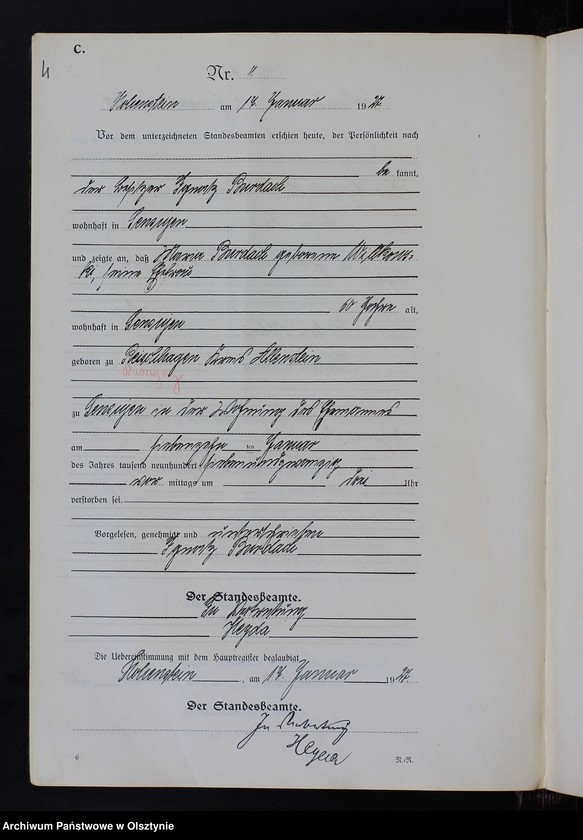 C.
4
Nr. 4
Hohenstein am 17. Januar 1927.
Vor dem unterzeichneten Standesbeamten erschien heute, der Persönlichkeit nach
be kannt,
der Besitzer Ignatz Burdach
wohnhaft in
und zeigte an, daß Maria Burdach geborene
ki, seine Ehefrau
60 Jahre alt,
wohnhaft in
geboren zu Kreis Allenstein
zu in der Wohnung des Ehemannes
am siebzehn ten Januar
des Jahres tausend neunhundert siebenundzwanzig
vor mittags um drei Uhr
verstorben sei.
Vorgelesen, genehmigt und unterschrieben
Ignatz Burdach
Der Standesbeamte.
In Vertretung
Heyda
Die Uebereinstimmung mit dem Hauptregister beglaubigt
Hohenstein, am 17. Januar 1927.
Der Standesbeamte.
In Vertretung
Heyda
6 R.-R.
Archiwum Państwowe w Olsztynie